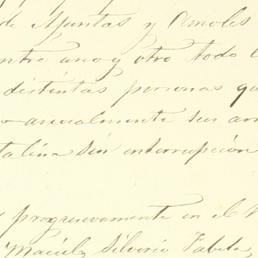 de Ajuntas y Amoles
entre uno y otro todo
distintas personas qu
anualmente sus ar
talina sin interrupcion
y progresivamente en el
Maciel, Silverio Fabela,